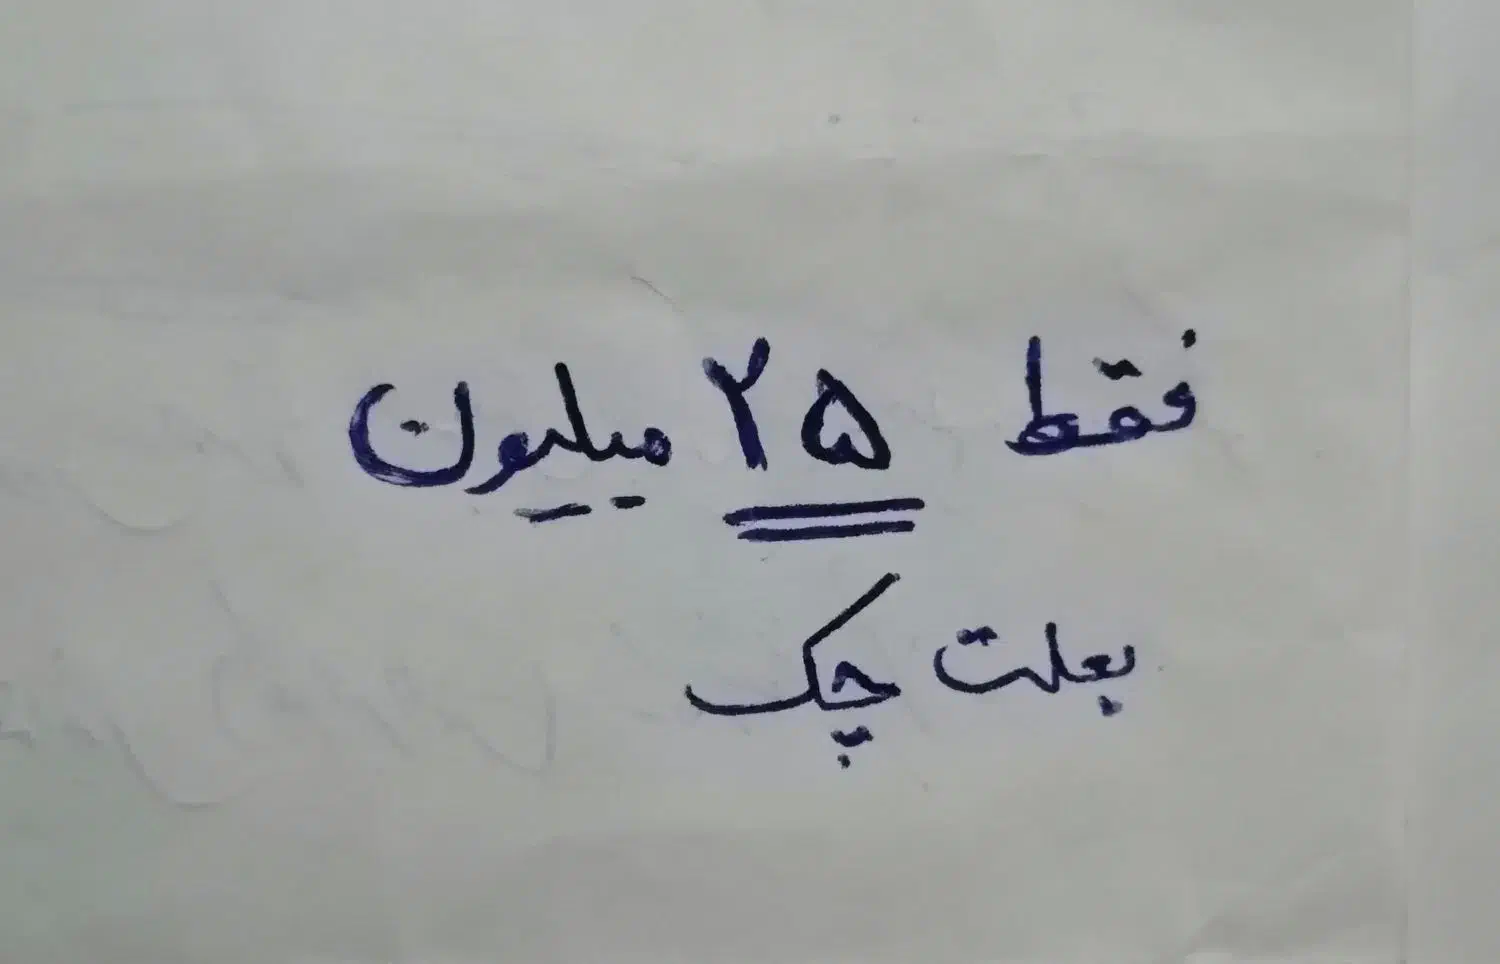 فقط ۲۵ میلیون
بعلت چک